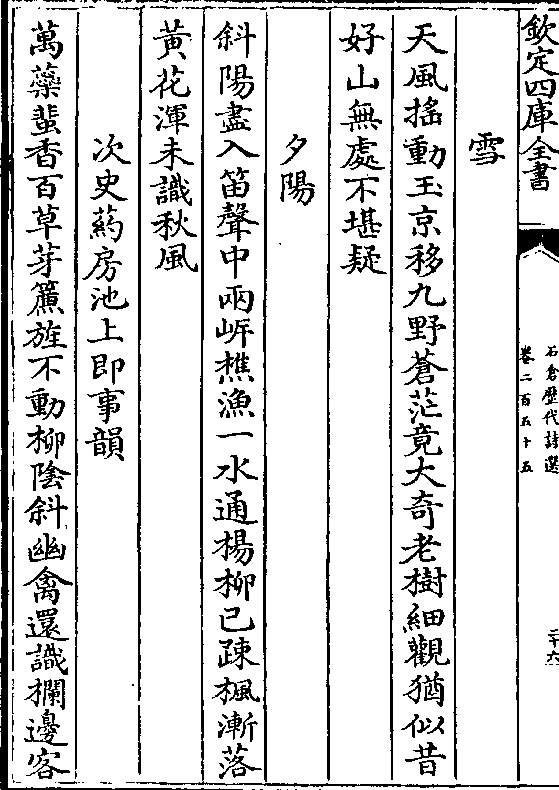 欽定四庫全書
石倉歷代詩選
卷二百五十五
二十六
雪
天風搖動玉京移九野蒼茫竟大奇老樹細觀猶似昔
好山無處不堪疑
夕陽
斜陽盡入笛聲中兩㟁樵漁一水通楊柳已疎楓漸落
黃花渾未識秋風
次史葯房池上即事韻
萬蘂蜚香百草芽簾旌不動柳陰斜幽禽還識欄邊客